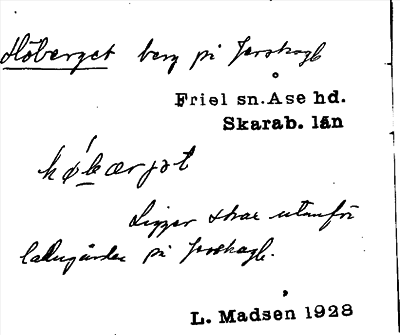 Höberget berg på Forshagb
Friel sn. Åse hd.
Skarab. län
hǿbærjət
Ligger strax utanför
ladugården på Forshagb.
L. Madsén 1928